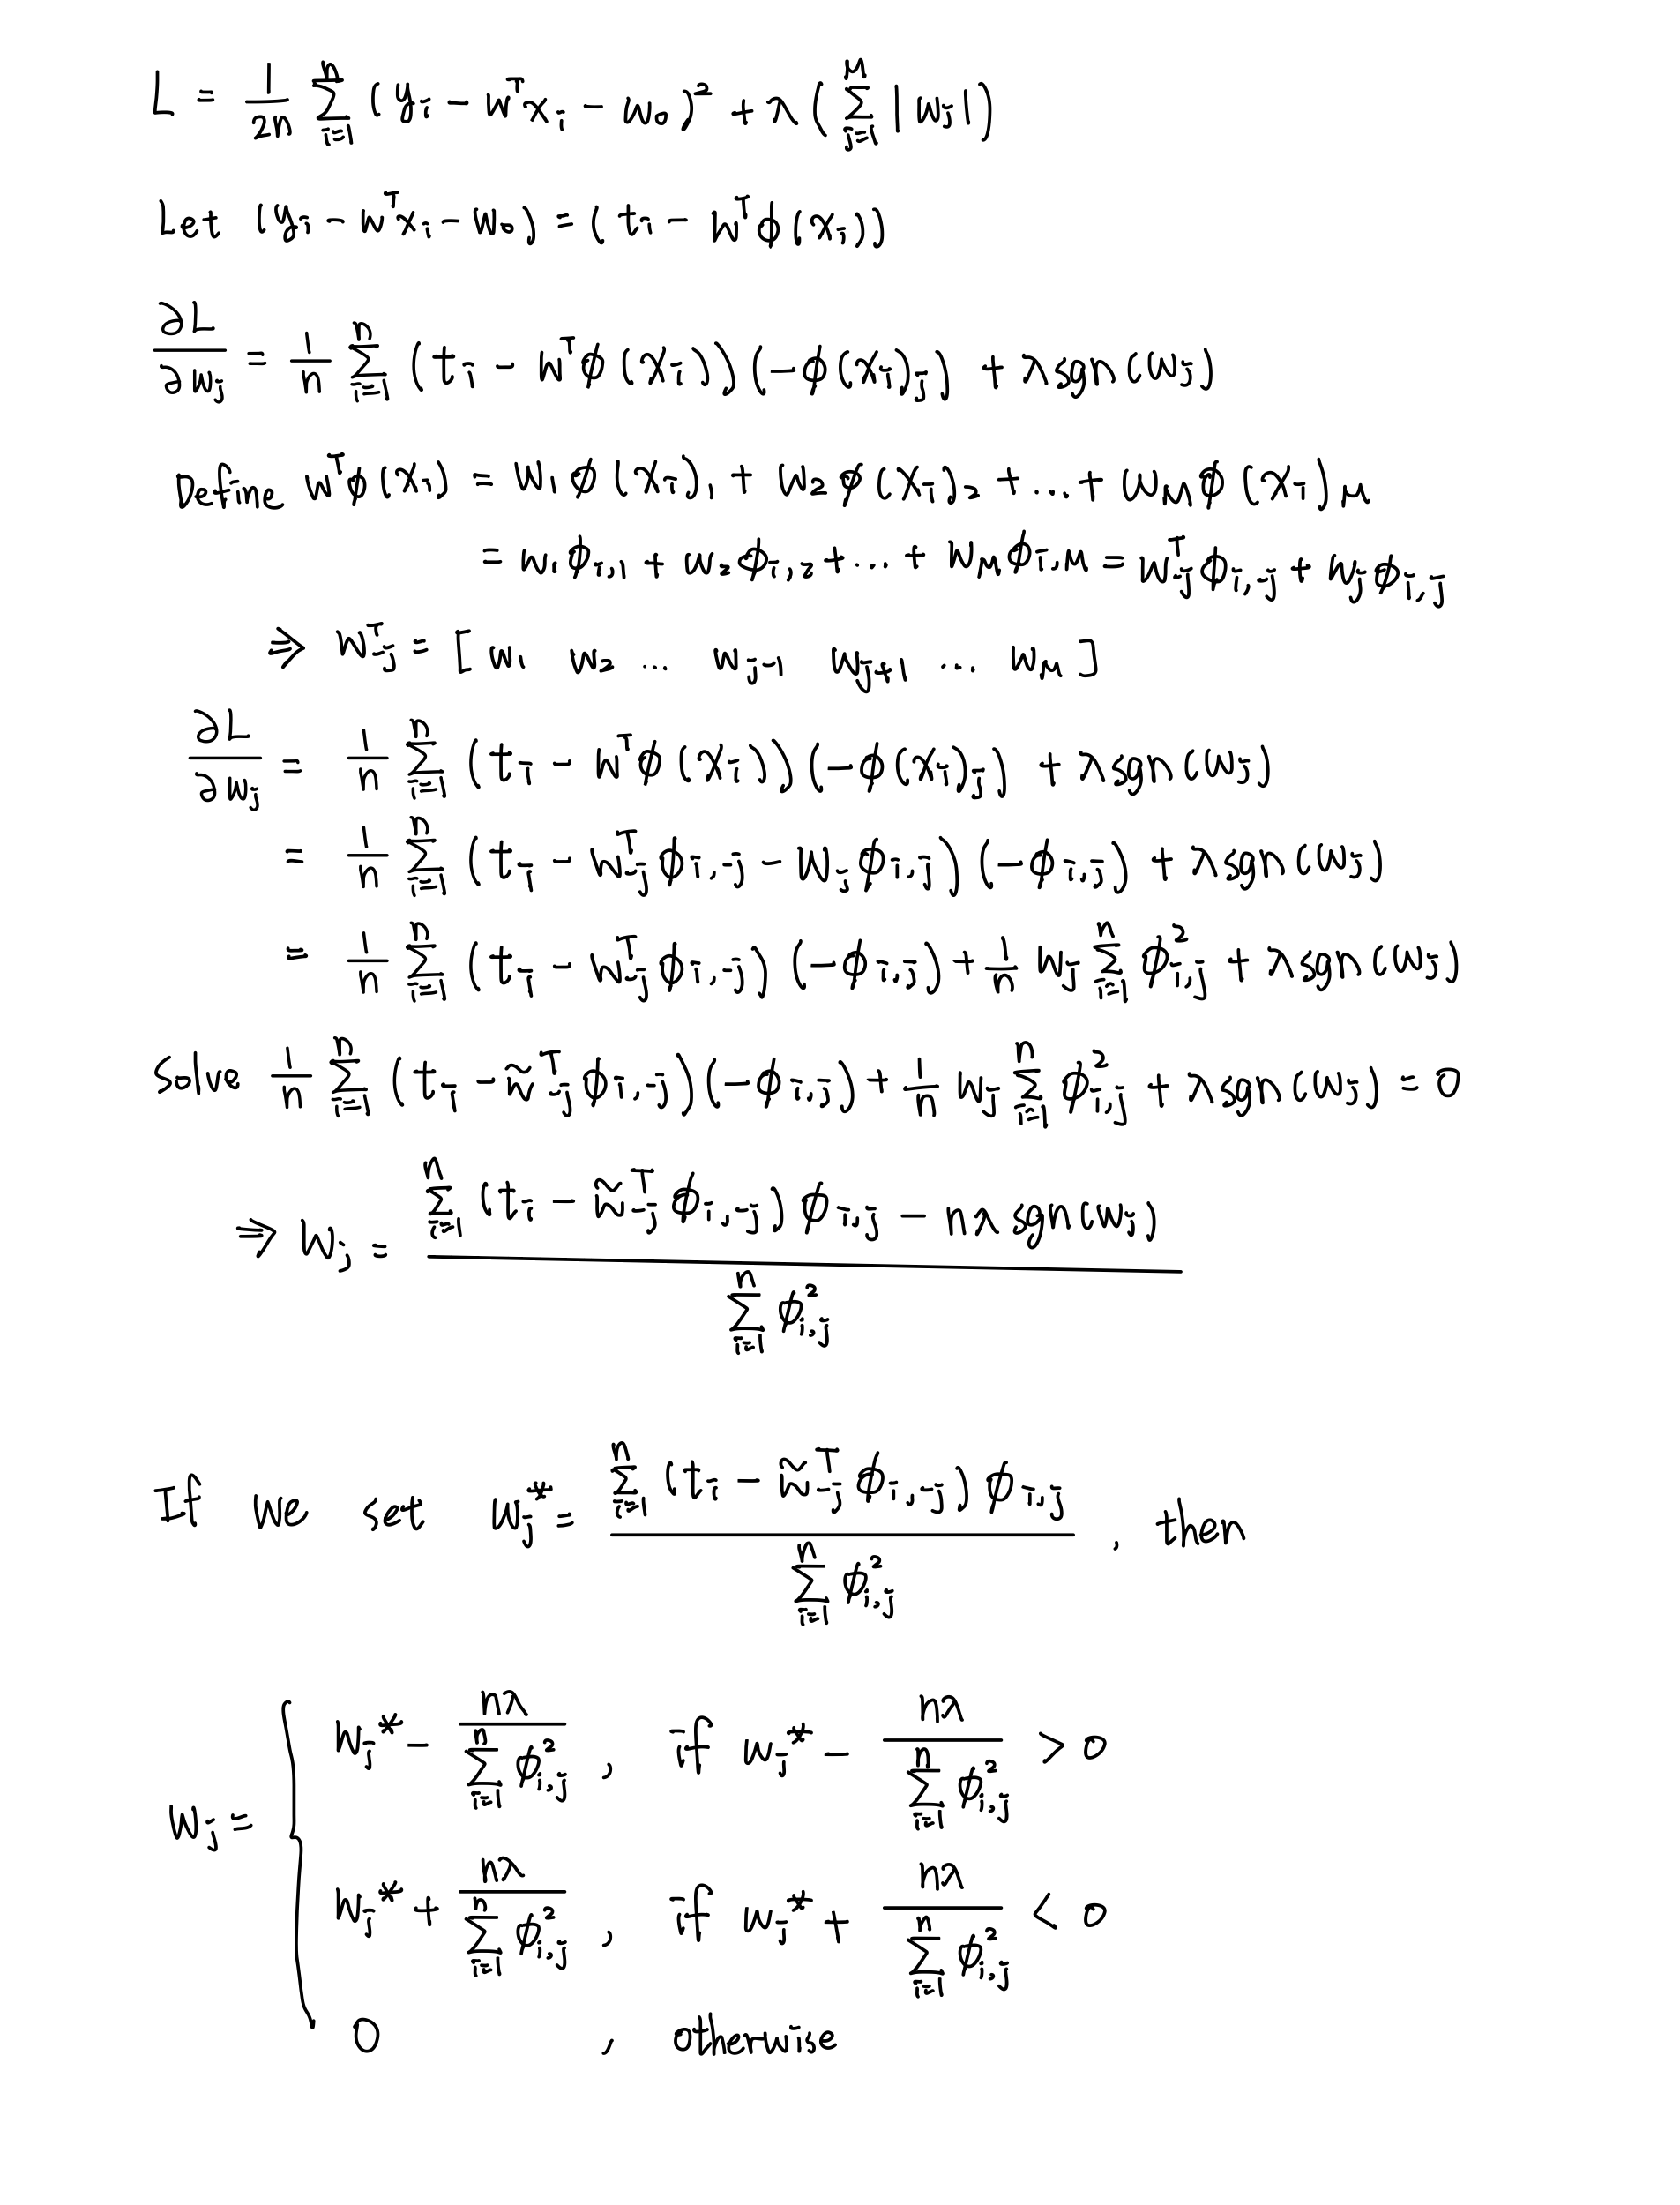 L = \frac{1}{2n} \sum_{i=1}^{n} (y_i - w^T x_i - w_0)^2 + λ(\sum_{j=1}^{M} |w_j|)
Let (y_i - w^T x_i - w_0) = (t_i - w^T ϕ(x_i))
\frac{∂L}{∂w_j} = \frac{1}{n} \sum_{i=1}^{n} (t_i - w^T ϕ(x_i))(-ϕ(x_i)_j) + λ sgn(w_j)
Define w^T ϕ(x_i) = w_1 ϕ(x_i)_1 + w_2 ϕ(x_i)_2 + ... + w_M ϕ(x_i)_M
= w_1 ϕ_{i,1} + w_2 ϕ_{i,2} + ... + w_M ϕ_{i,M} = w_{-j}^T ϕ_{i,-j} + w_j ϕ_{i,j}
⇒ w_{-j}^T = [ w_1 w_2 ... w_{j-1} w_{j+1} ... w_M ]
\frac{∂L}{∂w_j} = \frac{1}{n} \sum_{i=1}^{n} (t_i - w^T ϕ(x_i))(-ϕ(x_i)_j) + λ sgn(w_j)
= \frac{1}{n} \sum_{i=1}^{n} (t_i - w_{-j}^T ϕ_{i,-j} - w_j ϕ_{i,j})(-ϕ_{i,j}) + λ sgn(w_j)
= \frac{1}{n} \sum_{i=1}^{n} (t_i - w_{-j}^T ϕ_{i,-j})(-ϕ_{i,j}) + \frac{1}{n} w_j \sum_{i=1}^{n} ϕ_{i,j}^2 + λ sgn(w_j)
Solve \frac{1}{n} \sum_{i=1}^{n} (t_i - \tilde{w}_{-j}^T ϕ_{i,-j})(-ϕ_{i,j}) + \frac{1}{n} w_j \sum_{i=1}^{n} ϕ_{i,j}^2 + λ sgn(w_j) = 0
⇒ w_j = \frac{\sum_{i=1}^{n} (t_i - \tilde{w}_{-j}^T ϕ_{i,-j}) ϕ_{i,j} - nλ sgn(w_j)}{\sum_{i=1}^{n} ϕ_{i,j}^2}
If we set w_j^* = \frac{\sum_{i=1}^{n} (t_i - \tilde{w}_{-j}^T ϕ_{i,-j}) ϕ_{i,j}}{\sum_{i=1}^{n} ϕ_{i,j}^2} , then
w_j = { w_j^* - \frac{nλ}{\sum_{i=1}^{n} ϕ_{i,j}^2} , if w_j^* - \frac{nλ}{\sum_{i=1}^{n} ϕ_{i,j}^2} > 0
w_j^* + \frac{nλ}{\sum_{i=1}^{n} ϕ_{i,j}^2} , if w_j^* + \frac{nλ}{\sum_{i=1}^{n} ϕ_{i,j}^2} < 0
0 , otherwise